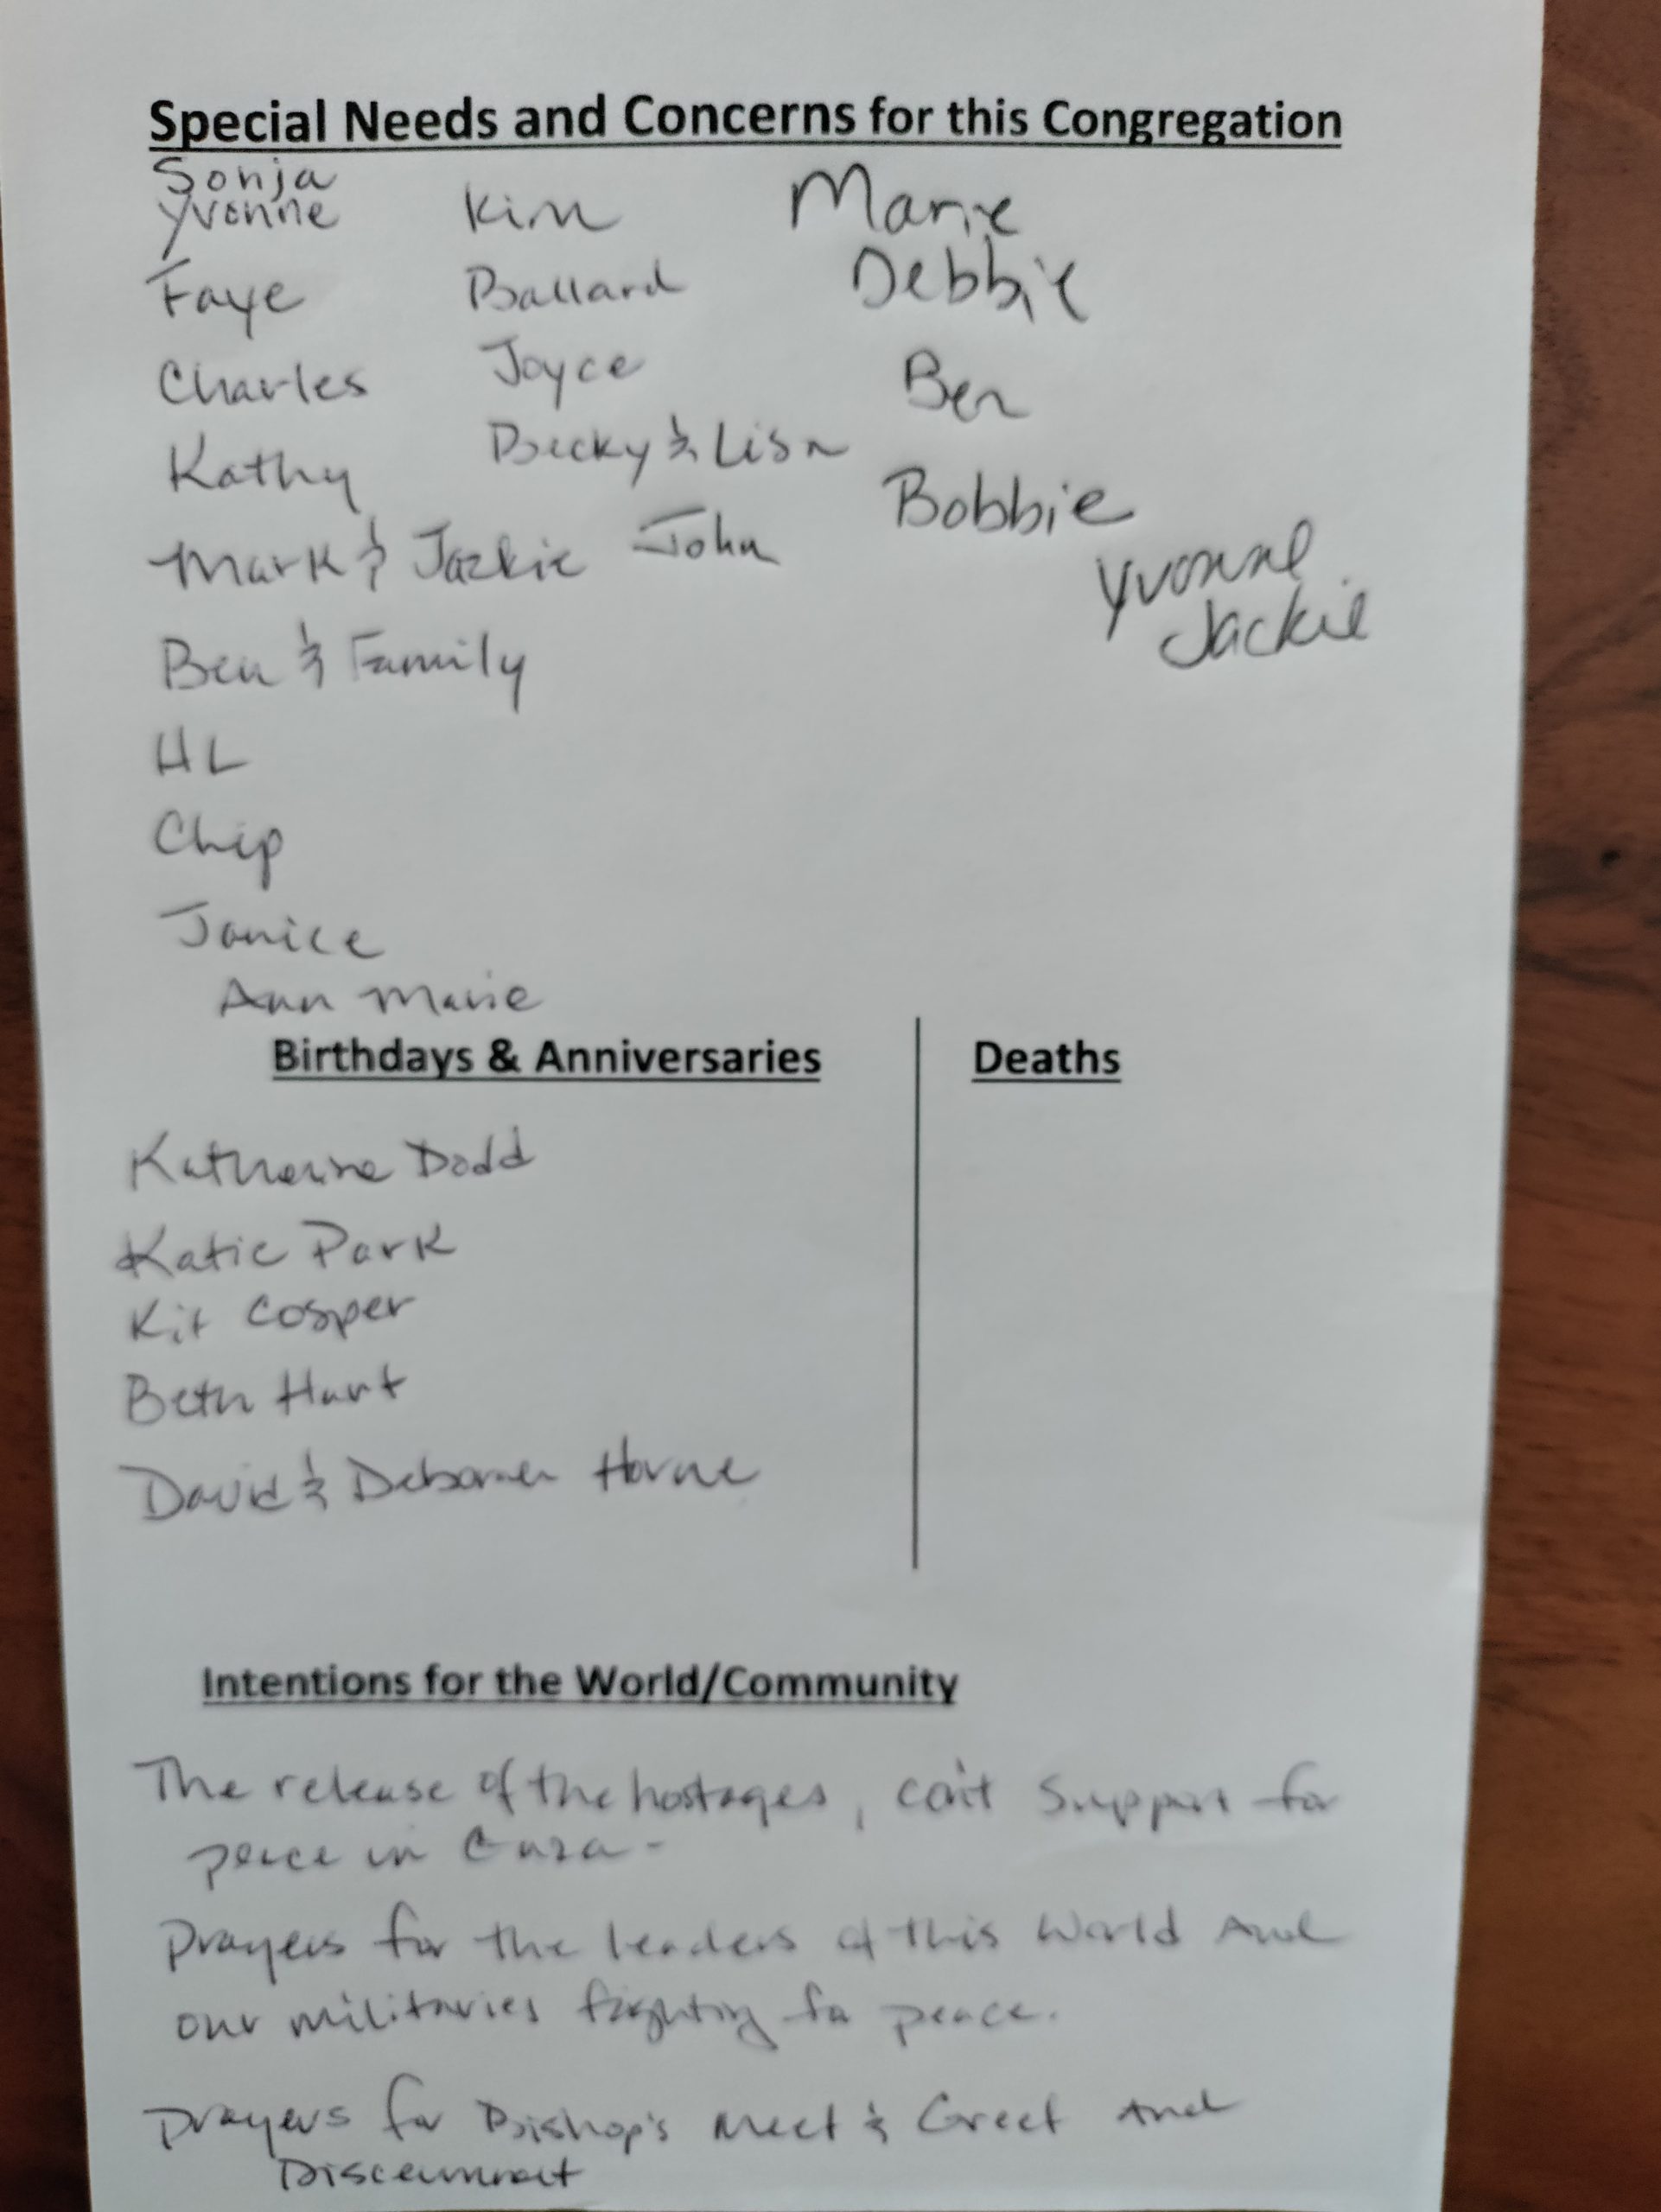 Special Needs and Concerns for this Congregation
Sonja
Yvonne
Faye
Charles
Kathy
Mark & Jackie
Ben & Family
HL
Chip
Janice
Ann Marie
Kim
Ballard
Joyce
Becky & Lisa
John
Marie
Debbie
Ben
Bobbie
Yvonne
Jackie
Birthdays & Anniversaries
Katherine Dodd
Katie Park
Kit Cosper
Beth Hart
David & Deborah Horne
Deaths
Intentions for the World/Community
The release of the hostages, con't Support for
peace in Gaza -
Prayers for the leaders of this World And
our militaries fighting for peace.
Prayers for Bishop's Meet & Greet And
Discernment